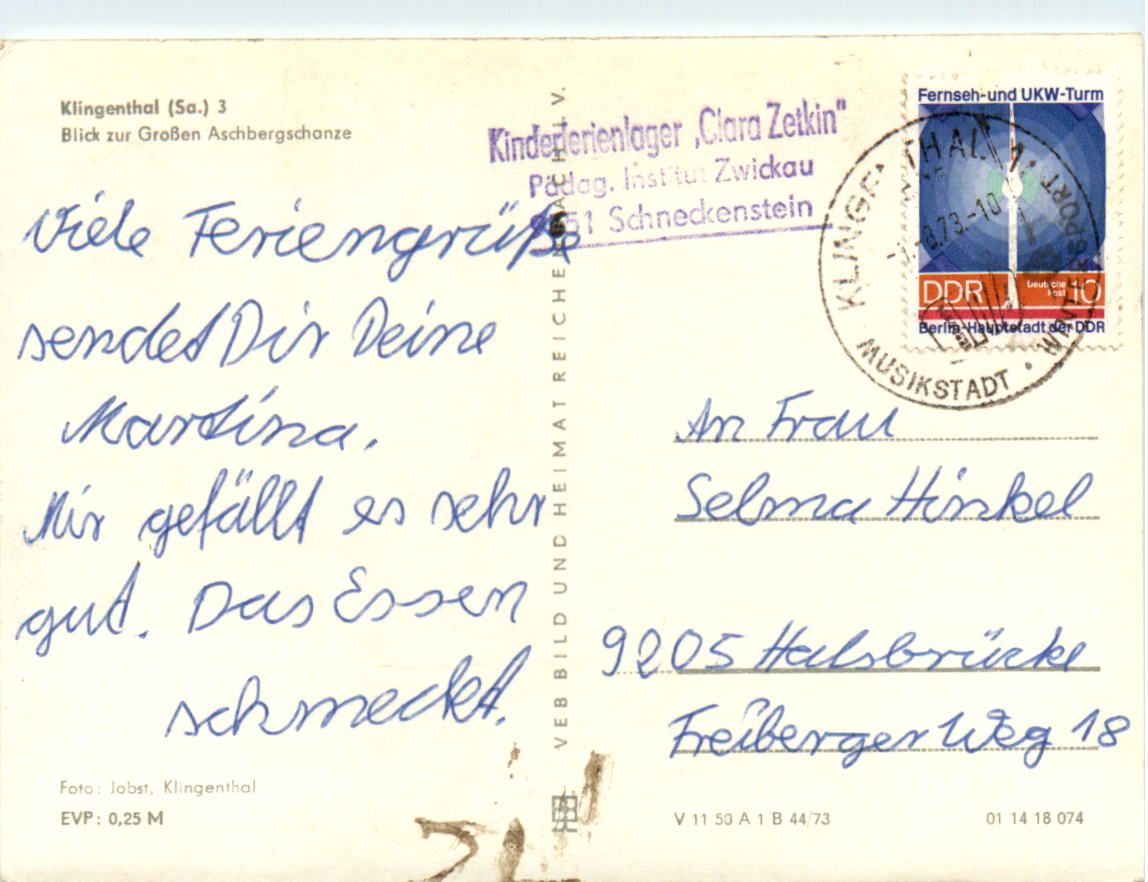 Klingenthal (Sa.) 3
Blick zur Großen Aschbergschanze
Viele Feriengrüße
sendet Dir Deine
Martina.
Mir gefällt es sehr
gut. Das Essen
schmeckt.
Foto: Jobst, Klingenthal
EVP: 0,25 M
VEB BILD UND HEIMAT REICHENBACH I. V.
Kinderferienlager „Clara Zetkin"
Pädag. Institut Zwickau
51 Schneckenstein
Fernseh- und UKW-Turm
DDR Deutsche Post 10
Berlin-Hauptstadt der DDR
KLINGENTHAL
73-10
MUSIKSTADT · WINTERSPORT
An Frau
Selma Hinkel
9205 Halsbrücke
Freiberger Weg 18
V 11 50 A 1 B 44/73
01 14 18 074